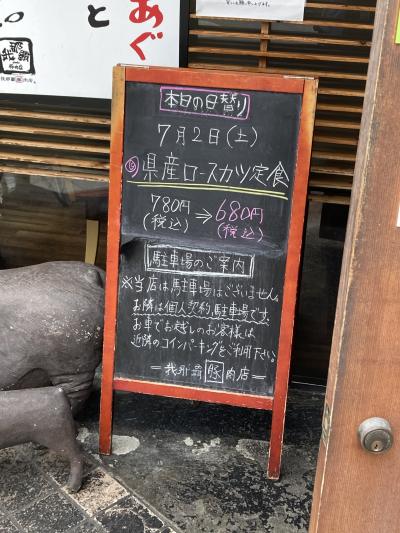 あぐ
と
本日の日替り
7月2日(土)
県産ロースカツ定食
780円 → 680円
(税込) (税込)
駐車場のご案内
※当店は駐車場はございません。
お隣は個人契約駐車場です。
お車でお越しのお客様は
近隣のコインパーキングをご利用下さい。
豚肉店